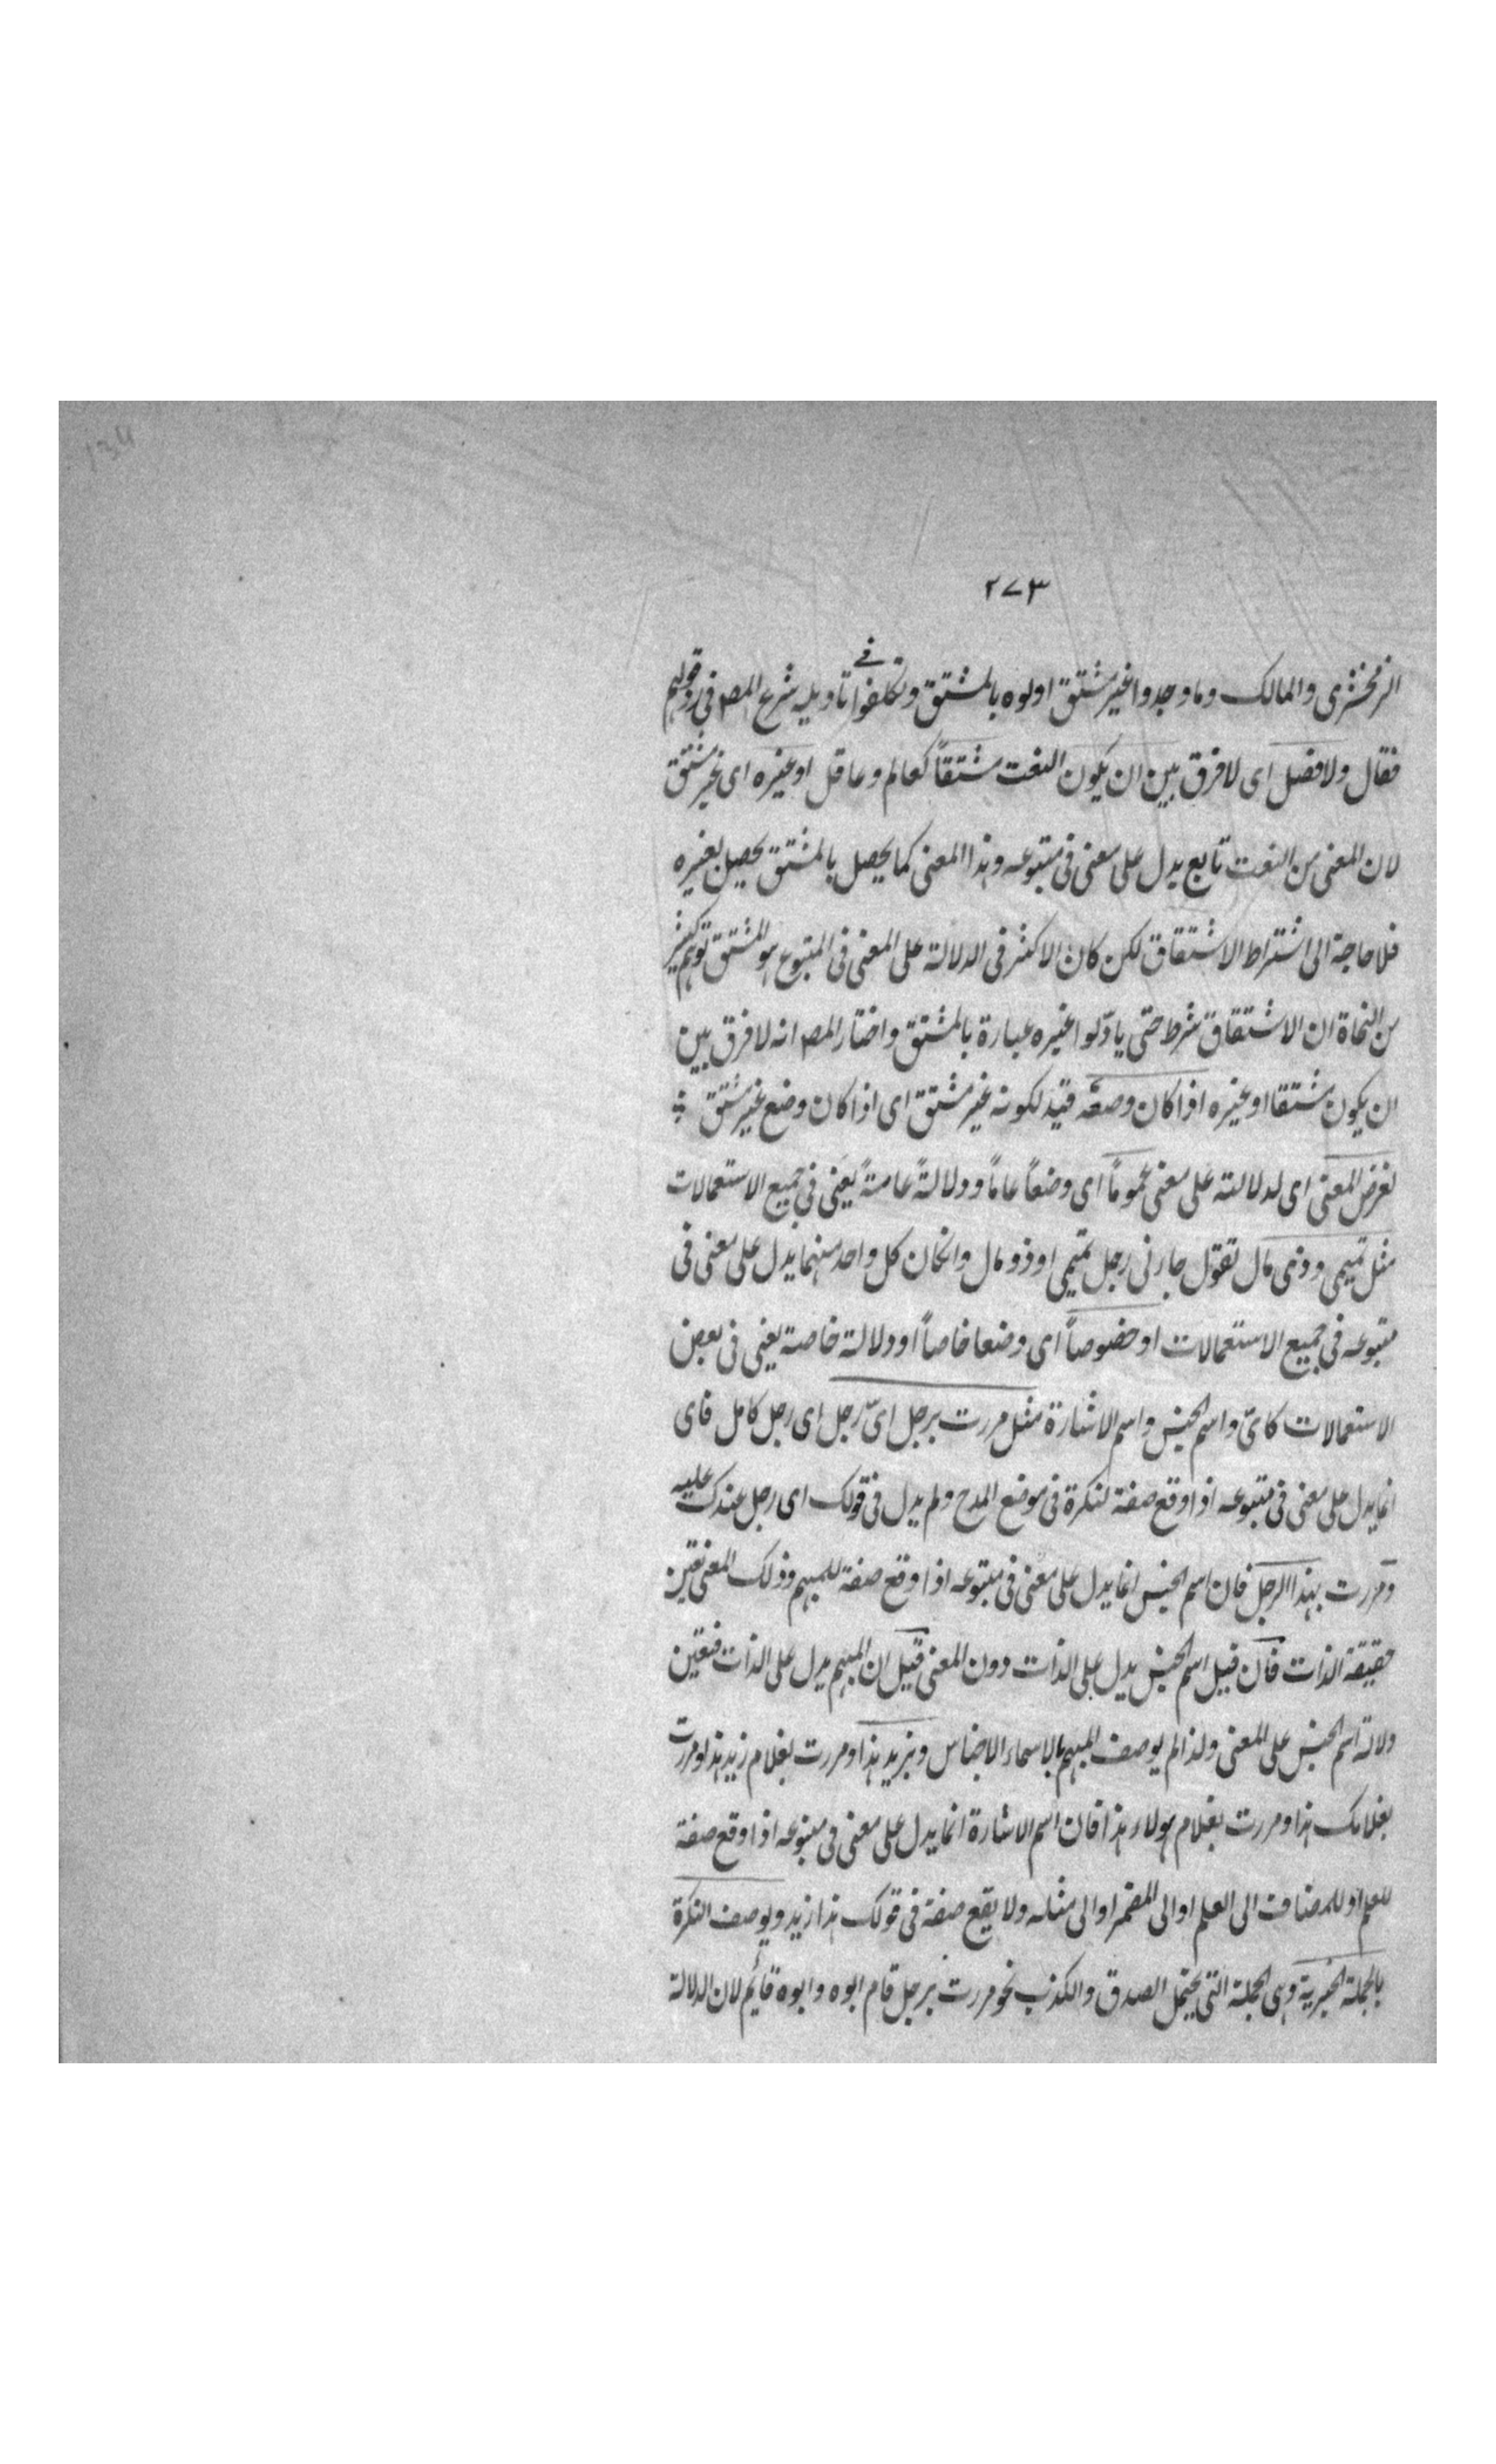 ٢٧٣
الزمخشرى والمالك وما وجدوا غير مشتق اولوه بالمشتق وتكلفوا فے تاويله شرع المصـ فى رد قولهم
فقال ولا فصل اى لا فرق بين ان يكون النعت مشتقاً كعالم وعاقل او غيره اى غير مشتق
لان المعنى من النعت تابع يدل على معنى فى متبوعه وهذا المعنى كما يحصل بالمشتق يحصل بغيره
فلا حاجة الى اشتراط الاشتقاق لكن كان الاكثر فى الدلالة على المعنى فى المتبوع هو المشتق توهم كثير
من النحاة ان الاشتقاق شرط حتى ياولوا غيره عبارة بالمشتق واختار المصـ انه لا فرق بين
ان يكون مشتقا او غيره اذا كان وضعه قيد لكونه غير مشتق اى اذا كان وضع غير مشتق
لغرض المعنى اى لدلالته على معنى عموماً اى وضعاً عاماً ودلالةً عامةً يعنى فى جميع الاستعمالات
مثل تميمى وذى مال تقول جارنى رجل تميمى او ذو مال وانكان كل واحد منهما يدل على معنى فى
متبوعه فى جميع الاستعمالات او خصوصاً اى وضعا خاصاً او دلالة خاصة يعنى فى بعض
الاستعمالات كاىّ واسم الجنس واسم الاشارة مثل مررت برجل اىّ رجل اى رجل كامل فاى
انما يدل على معنى فى متبوعه اذا وقع صفة لنكرة فى موضع المدح ولم يدل فى قولك اى رجل عندك عليه
ومررت بهذا الرجل فان اسم الجنس انما يدل على معنى فى متبوعه اذا وقع صفة للمبهم وذلك المعنى تعين
حقيقة الذات فان قيل اسم الجنس يدل على الذات دون المعنى قيل ان المبهم يدل على الذات فتعين
دلالة اسم الجنس على المعنى ولذا لم يوصف المبهم بالاسماء الاجناس وبزيد هذا ومررت بغلام زيد هذا ومررت
بغلامك هذا ومررت بغلام هولاء هذا فان اسم الاشارة انما يدل على معنى فى متبوعه اذا وقع صفة
للعلم او للمضاف الى العلم او الى المضمر او الى مثله ولا يقع صفة فى قولك هذا زيد ويوصف النكرة
بالجملة الخبرية وهى الجملة التى يحتمل الصدق والكذب نحو مررت برجل قام ابوه وابوه قائم لان الدلالة